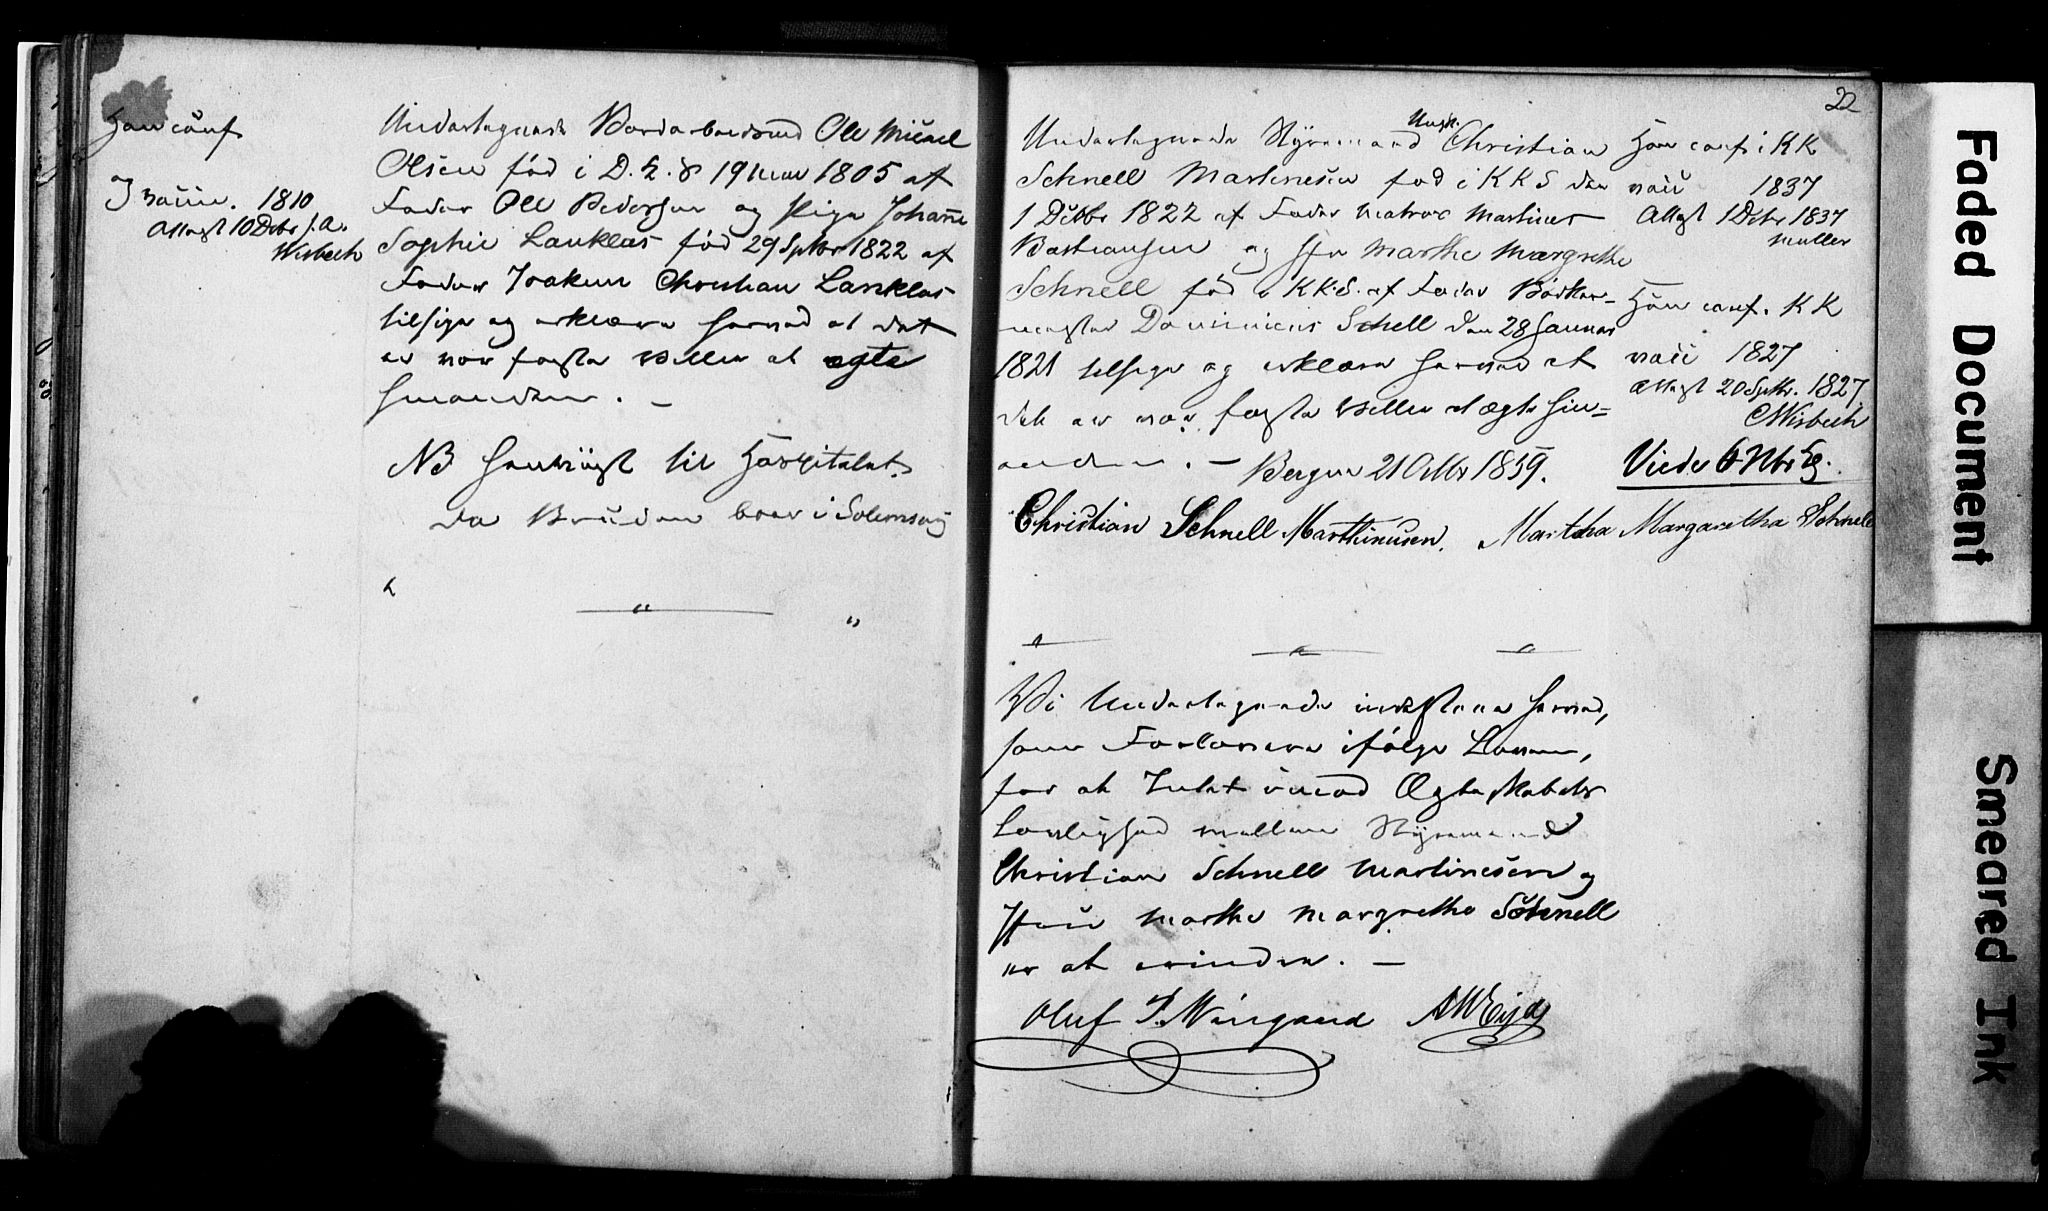 Han conf
og
vaccin. 1810
Attest 10 Debr s. A.
Wisbech
Undertegnede Ole Michael
Olsen fød i D. K. d 19 1805 af
Fader Ole Pedersen og Pige Johanne
Sophie Lanklas fød 29 Sptbr 1822 af
Fader Joakim Christian Lanklas
tilstaa og erklære herved at det
er vor faste Villie at ægte
hinanden. —
NB henbragt til Hospitalet
da Bruden boer i
22
Undertegnede Styrmand Ungk. Christian
Schnell Martinesen fød i K K S den
1 Debr 1822 af Fader Matros Martines
Bastiansen og Martha Margrethe
Schnell fød i K K. S. af Fader Bødker-
mester Dominicus Schell den 28 Januar
1821 og erklære herved at
det er vor faste Villie at ægte hin=
anden. — Bergen 21 Octbr 1859.
Christian Schnell Marthinusen. Martha Margaretha Schnell
Han conf i K K
vacc 1837
Attest 1 Debr 1837
Müller
Hun conf. K K
vacc 1827
Attest 20 Sptbr. 1827
Wisbech
Viede 6 Nbr
Vi Undertegnede indestaae herved,
som Forlovere ifølge Loven,
for at Intet imod Ægteskabets
Lovlighed mellem Styrmand
Christian Schnell Martinesen og
Martha Margrethe Schnell
er at erindre. —
Oluf J. Wingaard
Faded Document
Smeared Ink